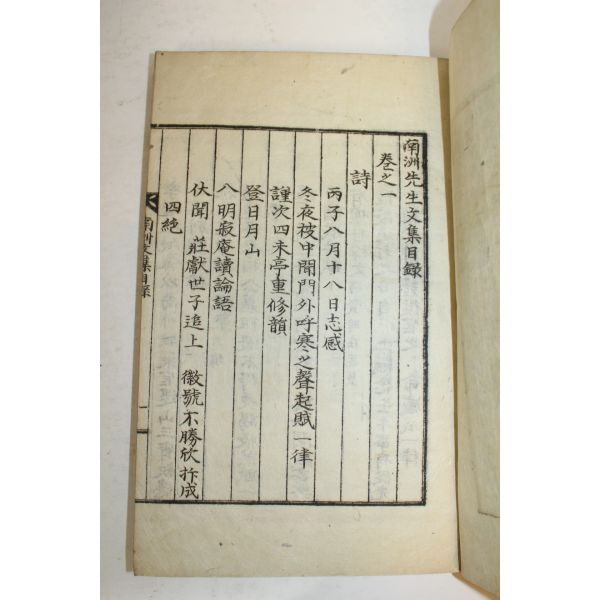 蘭洲先生文集目錄
卷之一
詩
丙子八月十八日志感
冬夜被中聞門外呼寒之聲起賦一律
謹次四未亭重修韻
登日月山
入明寂庵讀論語
伏聞 莊獻世子追上 徽號不勝欣抃成
四絕
蘭洲文集目錄
一